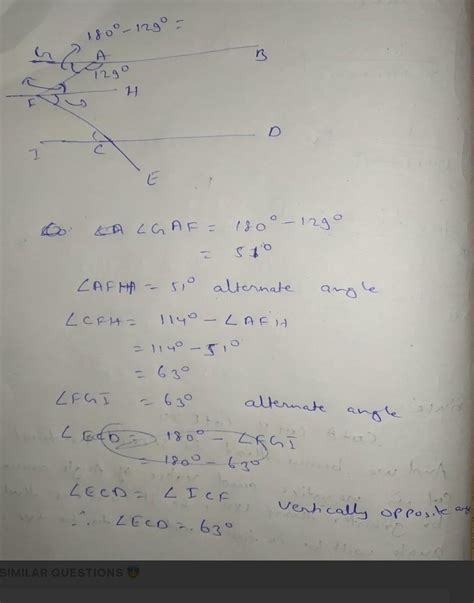 180° - 129° =
G A B
129°
F H
I C D
E
∠GAF = 180° - 129°
= 51°
∠AFH = 51° alternate angle
∠CFH = 114° - ∠AFH
= 114° - 51°
= 63°
∠FGI = 63° alternate angle
∠ECD = 180° - ∠FGI
= 180° - 63°
∠ECD = ∠ICF vertically opposite
∴ ∠ECD = 63°
SIMILAR QUESTIONS